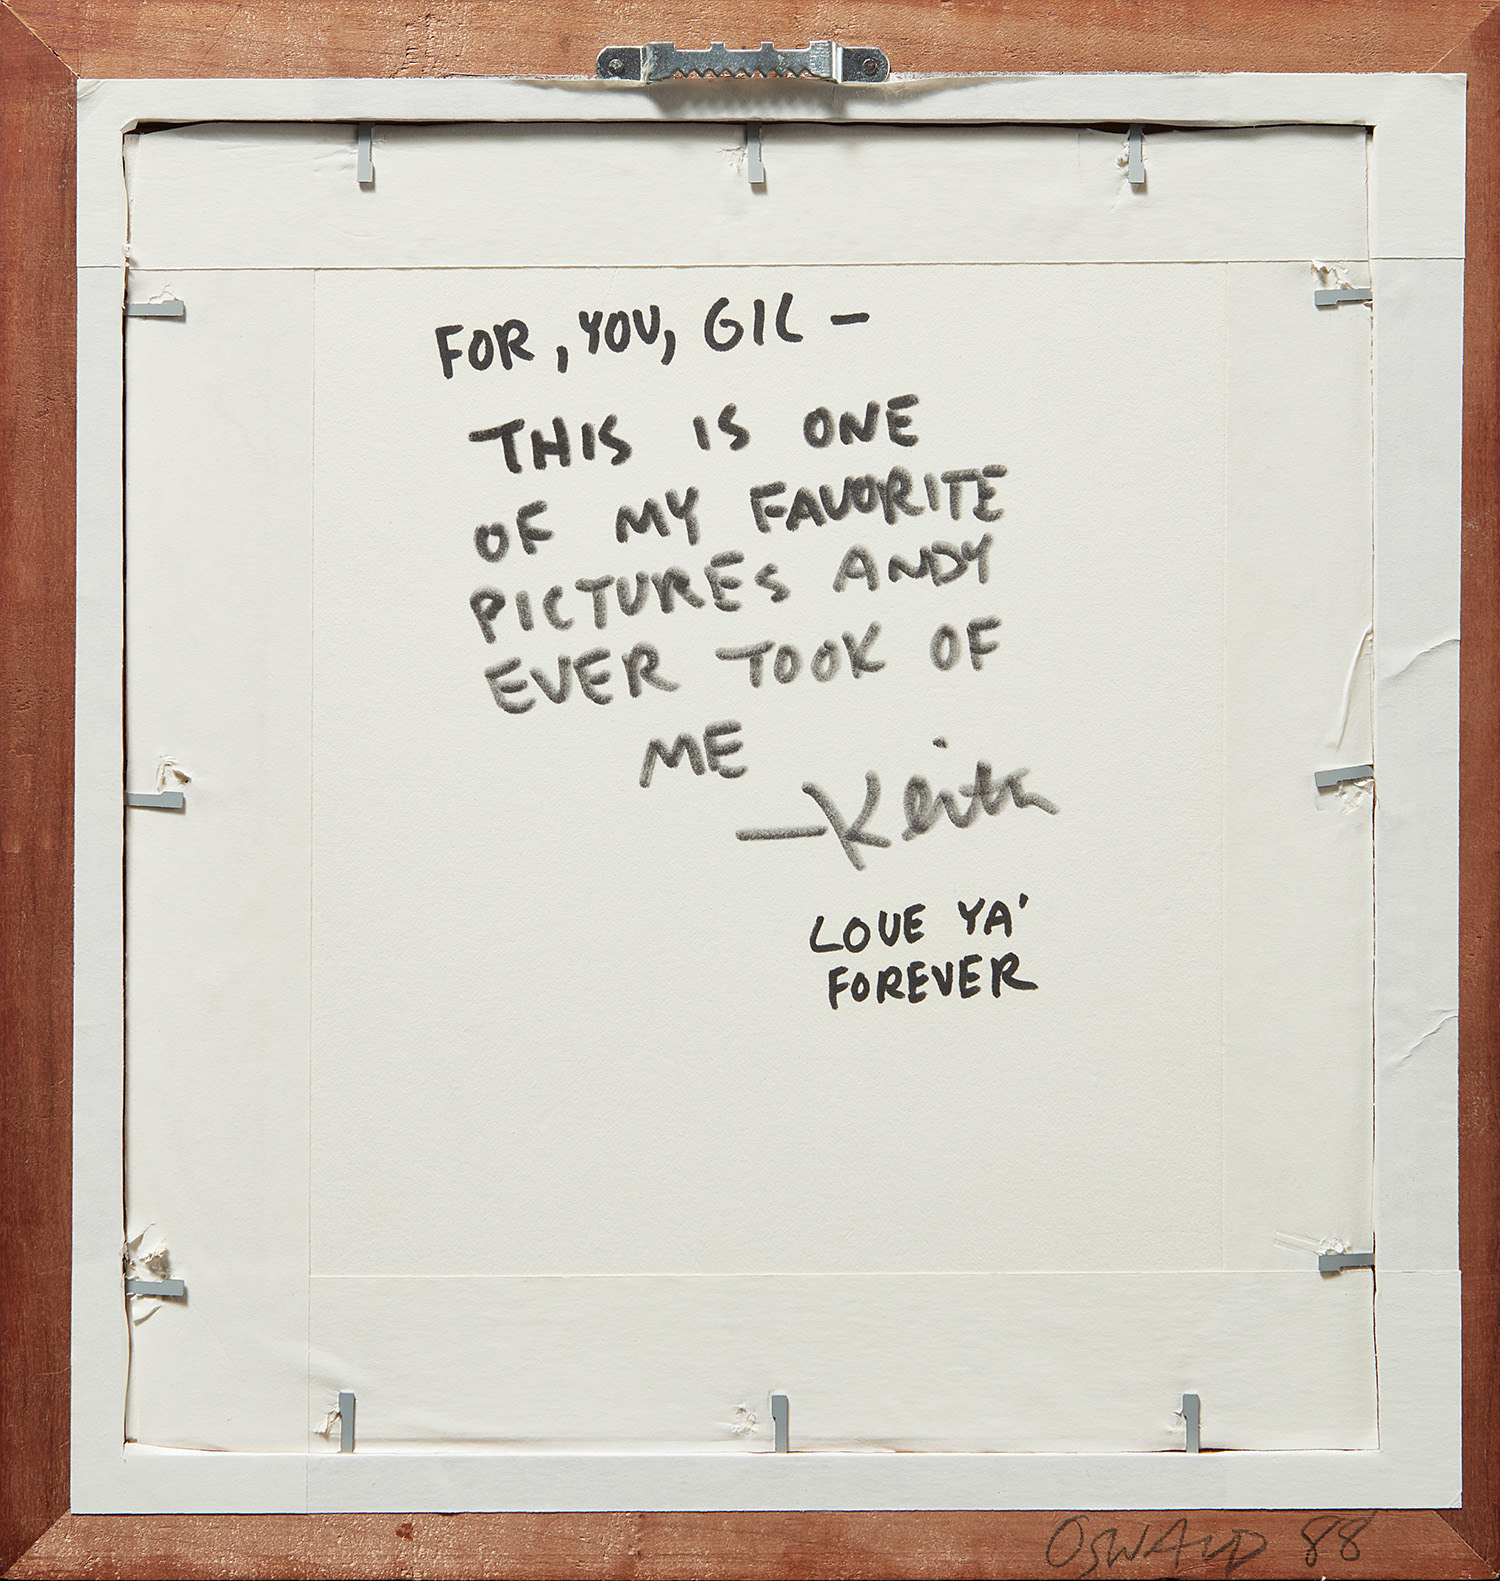 FOR, YOU, GIL –
THIS IS ONE
OF MY FAVORITE
PICTURES ANDY
EVER TOOK OF
ME
—Keith
LOVE YA'
FOREVER
OSWALD 88